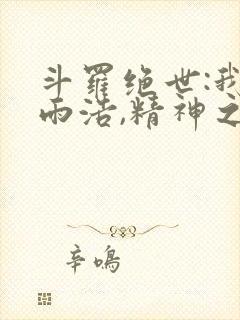 斗羅绝世:我
雨浩,精神之
辛鳴